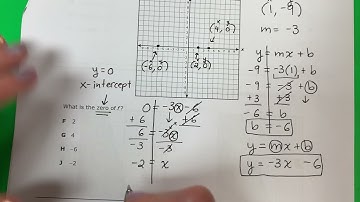 (1, -9)
m = -3
y = mx + b
-9 = -3(1) + b
-9 = -3 + b
+3 +3
-6 = b
b = -6
y = mx + b
y = -3x -6
(4, 0)
(-6, 0)
(2, 0)
y = 0
x-intercept
What is the zero of f?
F 2
G 4
H -6
J -2
0 = -3x - 6
+6 +6
6 = -3x
-3 -3
-2 = x